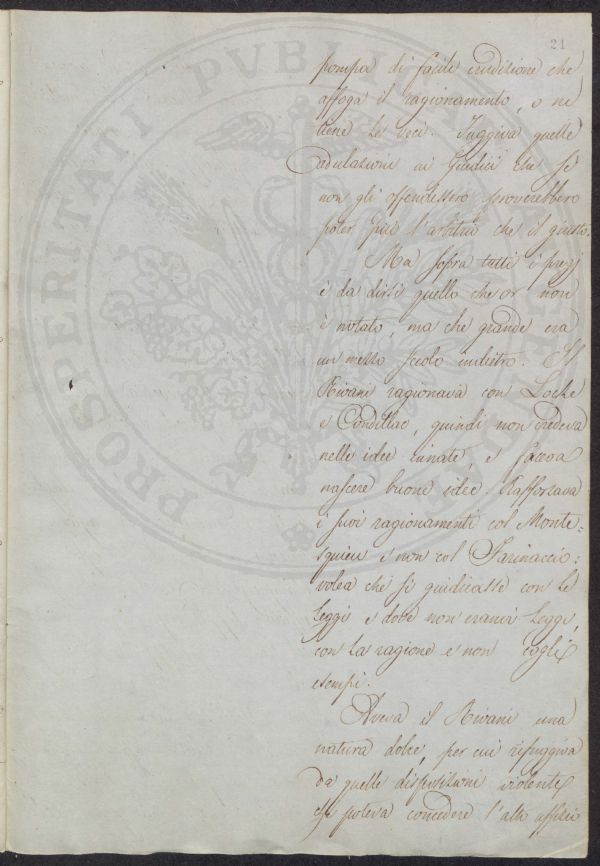 21
pompa di facile erudizione che
affoga il ragionamento, o ne
tiene le veci. Fuggiva quelle
adulazioni ai Giudici che se
non gli offendessero proverebbero
poter più l'arbitrio che il giusto.
Ma sopra tutti i pregj
è da dirsi quello che or non
è notato, ma che grande era
un mezzo secolo indietro. Il
Rivani ragionava con Locke
e Condillac, quindi non credeva
nelle idee innate, e faceva
nascere buone idee. Rafforzava
i suoi ragionamenti col Monte=
squieu e non col Farinaccio:
volea che si giudicasse con le
leggi e dove non eranvi leggi,
con la ragione e non cogli
esempi.
Aveva il Rivani una
natura dolce, per cui rifuggiva
da quelle disposizioni violente
che poteva concedere l'alto uffizio
PROSPERITATI PVBLI